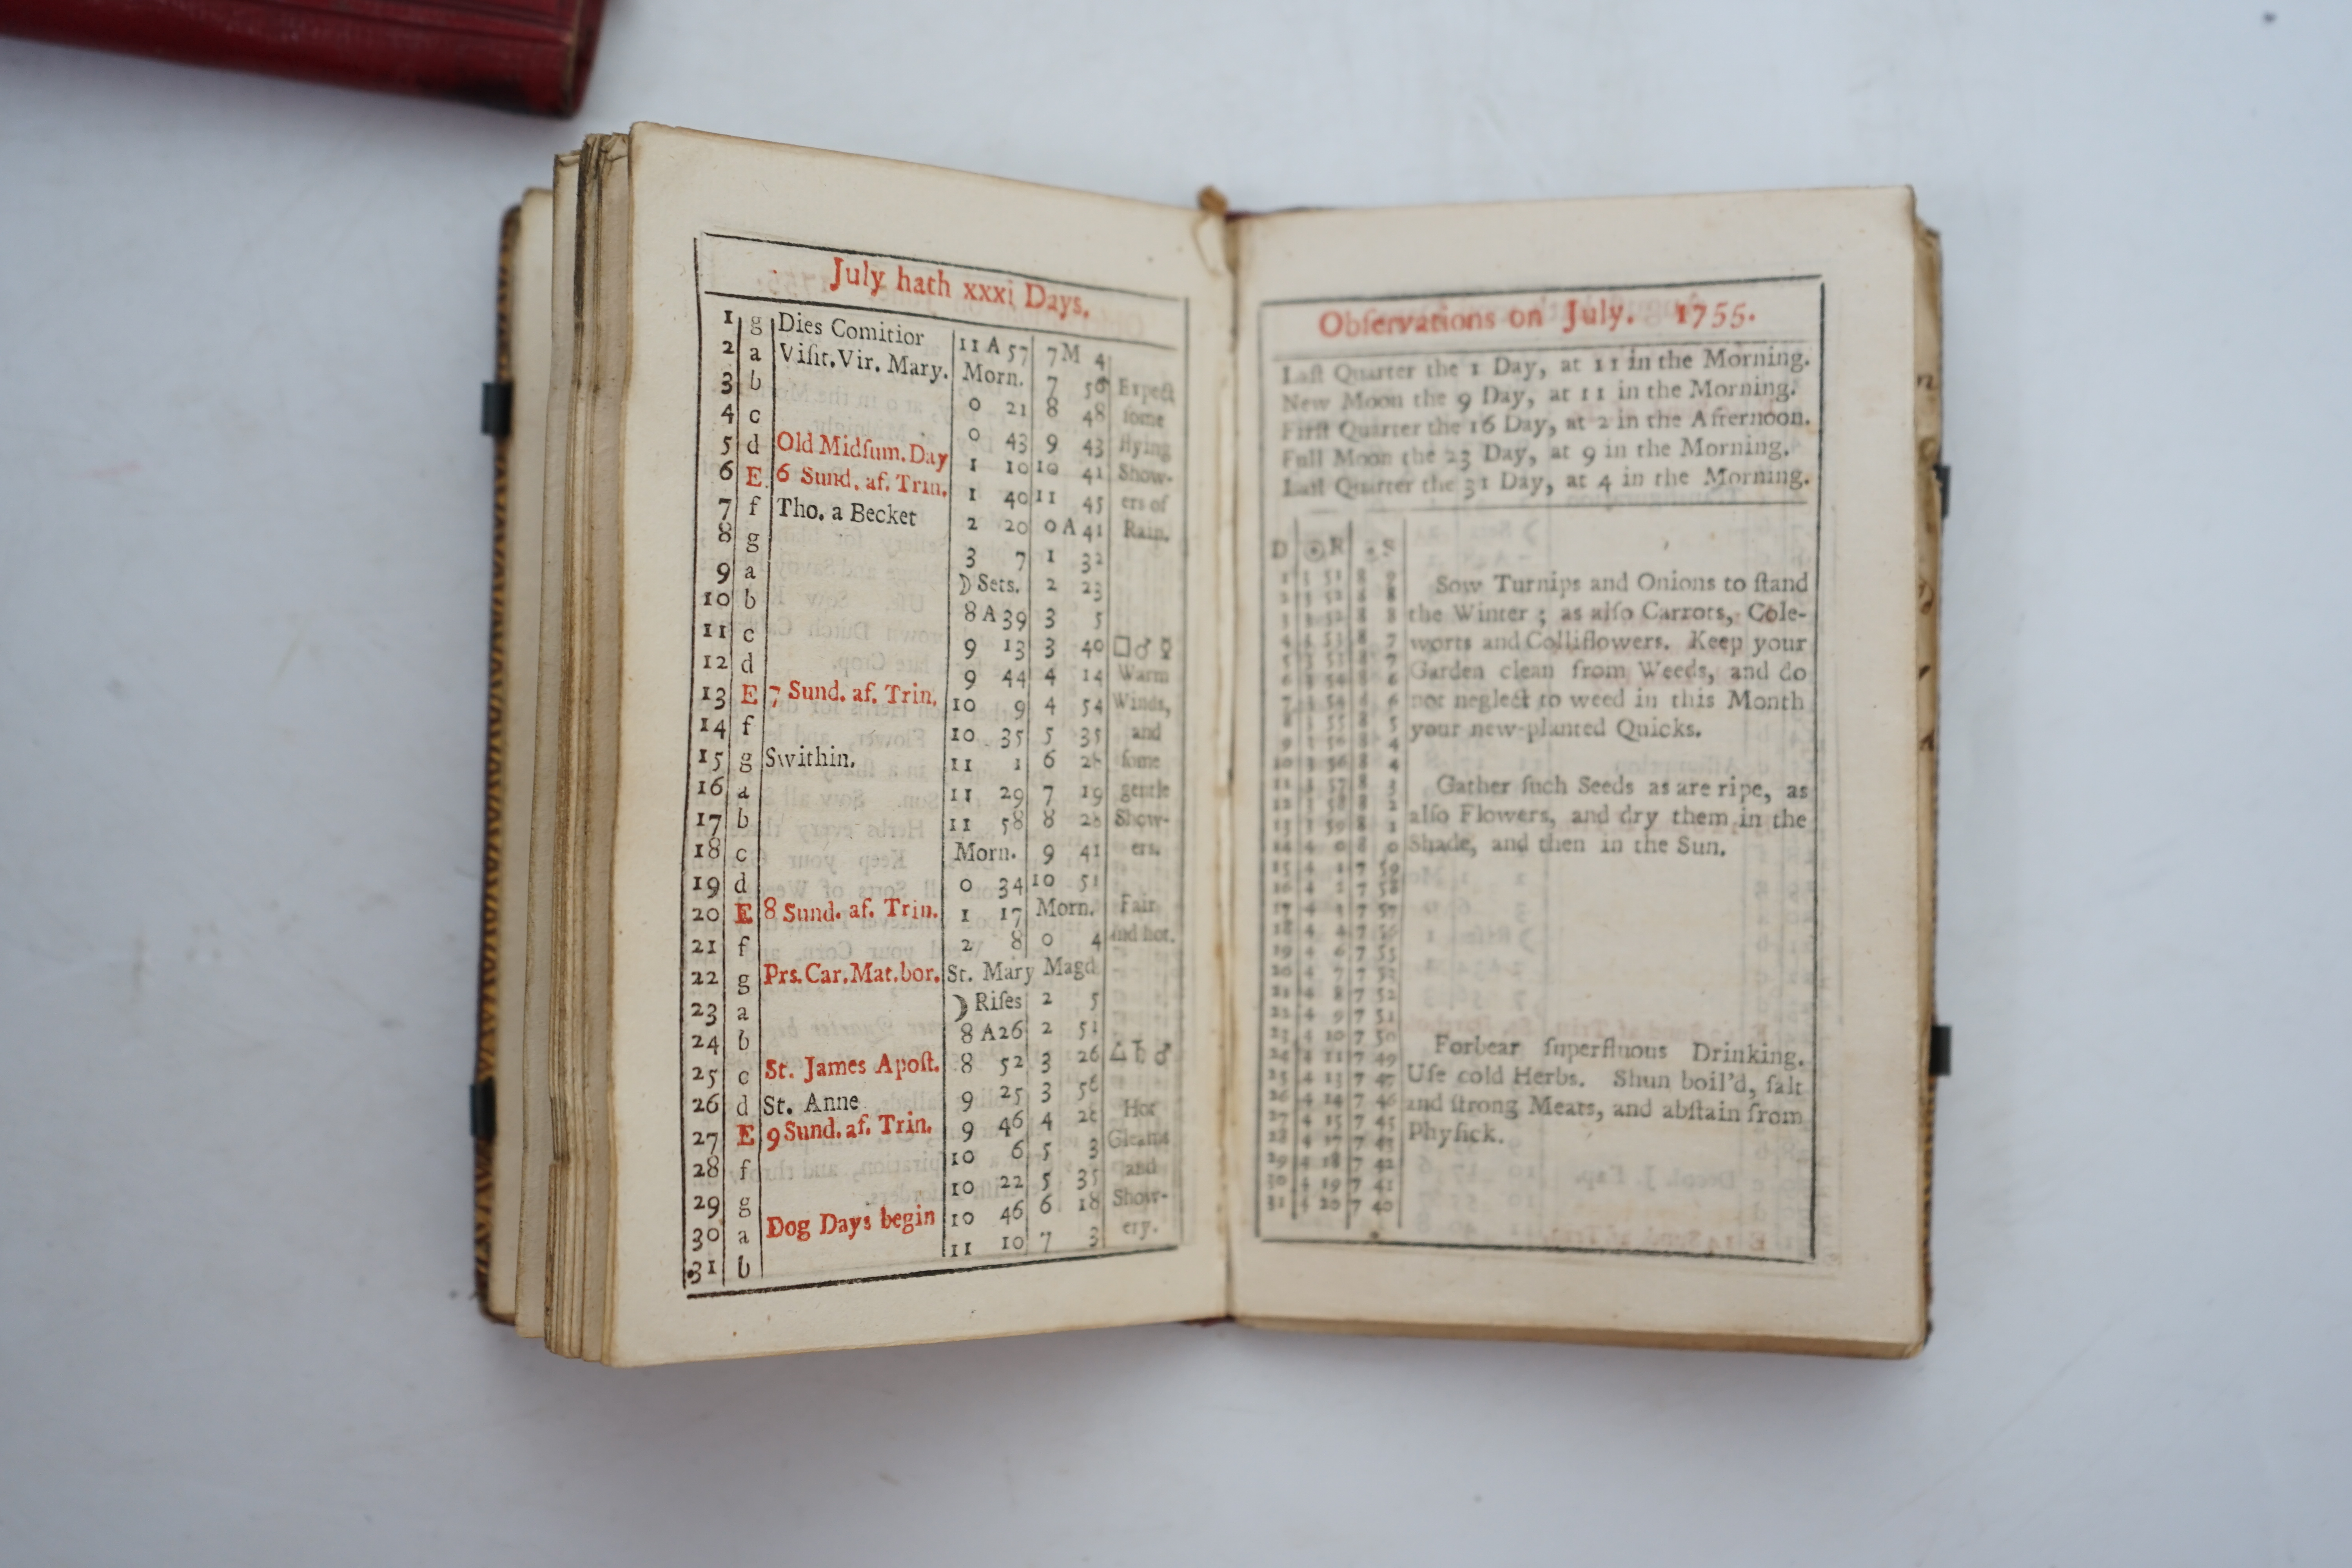 July hath xxxi Days.
1 g Dies Comitior 11 A 57 7 M 4
2 a Viſit. Vir. Mary. Morn. 7 56 Expect
3 b 0 21 8 48 ſome
4 c 0 43 9 43 flying
5 d Old Midſum. Day 1 10 10 41 Show-
6 E 6 Sund. af. Trin. 1 40 11 45 ers of
7 f Tho. a Becket 2 20 0 A 41 Rain.
8 g 3 7 1 32
9 a ☽ Sets. 2 23
10 b 8 A 39 3 5
11 c 9 13 3 40 □ ♂ ☿
12 d 9 44 4 14 Warm
13 E 7 Sund. af. Trin. 10 9 4 54 Winds,
14 f 10 35 5 35 and
15 g Swithin. 11 1 6 28 ſome
16 a 11 29 7 19 gentle
17 b 11 58 8 28 Show-
18 c Morn. 9 41 ers.
19 d 0 34 10 51
20 E 8 Sund. af. Trin. 1 17 Morn. Fair
21 f 2 8 0 4 and hot.
22 g Prs. Car. Mat. bor. St. Mary Magd
23 a ☽ Riſes 2 5
24 b 8 A 26 2 51
25 c St. James Apoſt. 8 52 3 26 △ ♄ ♂
26 d St. Anne 9 25 3 56
27 E 9 Sund. af. Trin. 9 46 4 28 Hot
28 f 10 6 5 3 Gleams
29 g 10 22 5 35 and
30 a Dog Days begin 10 46 6 18 Show-
31 b 11 10 7 3 ery.
Obſervations on July. 1755.
Laſt Quarter the 1 Day, at 11 in the Morning.
New Moon the 9 Day, at 11 in the Morning.
Firſt Quarter the 16 Day, at 2 in the Afternoon.
Full Moon the 23 Day, at 9 in the Morning.
Laſt Quarter the 31 Day, at 4 in the Morning.
D ☉ R ☉ S
14 4 0 8 0
15 4 1 7 59
19 4 6 7 55
21 4 8 7 52
22 4 9 7 51
23 4 10 7 50
24 4 11 7 49
25 4 13 7 47
26 4 14 7 46
27 4 15 7 45
28 4 17 7 43
29 4 18 7 42
30 4 19 7 41
31 4 20 7 40
Sow Turnips and Onions to ſtand
the Winter ; as alſo Carrots, Cole-
worts and Colliflowers. Keep your
Garden clean from Weeds, and do
not neglect to weed in this Month
your new-planted Quicks.
Gather ſuch Seeds as are ripe, as
alſo Flowers, and dry them in the
Shade, and then in the Sun.
Forbear ſuperfluous Drinking.
Uſe cold Herbs. Shun boil'd, ſalt
and ſtrong Meats, and abſtain from
Phyſick.